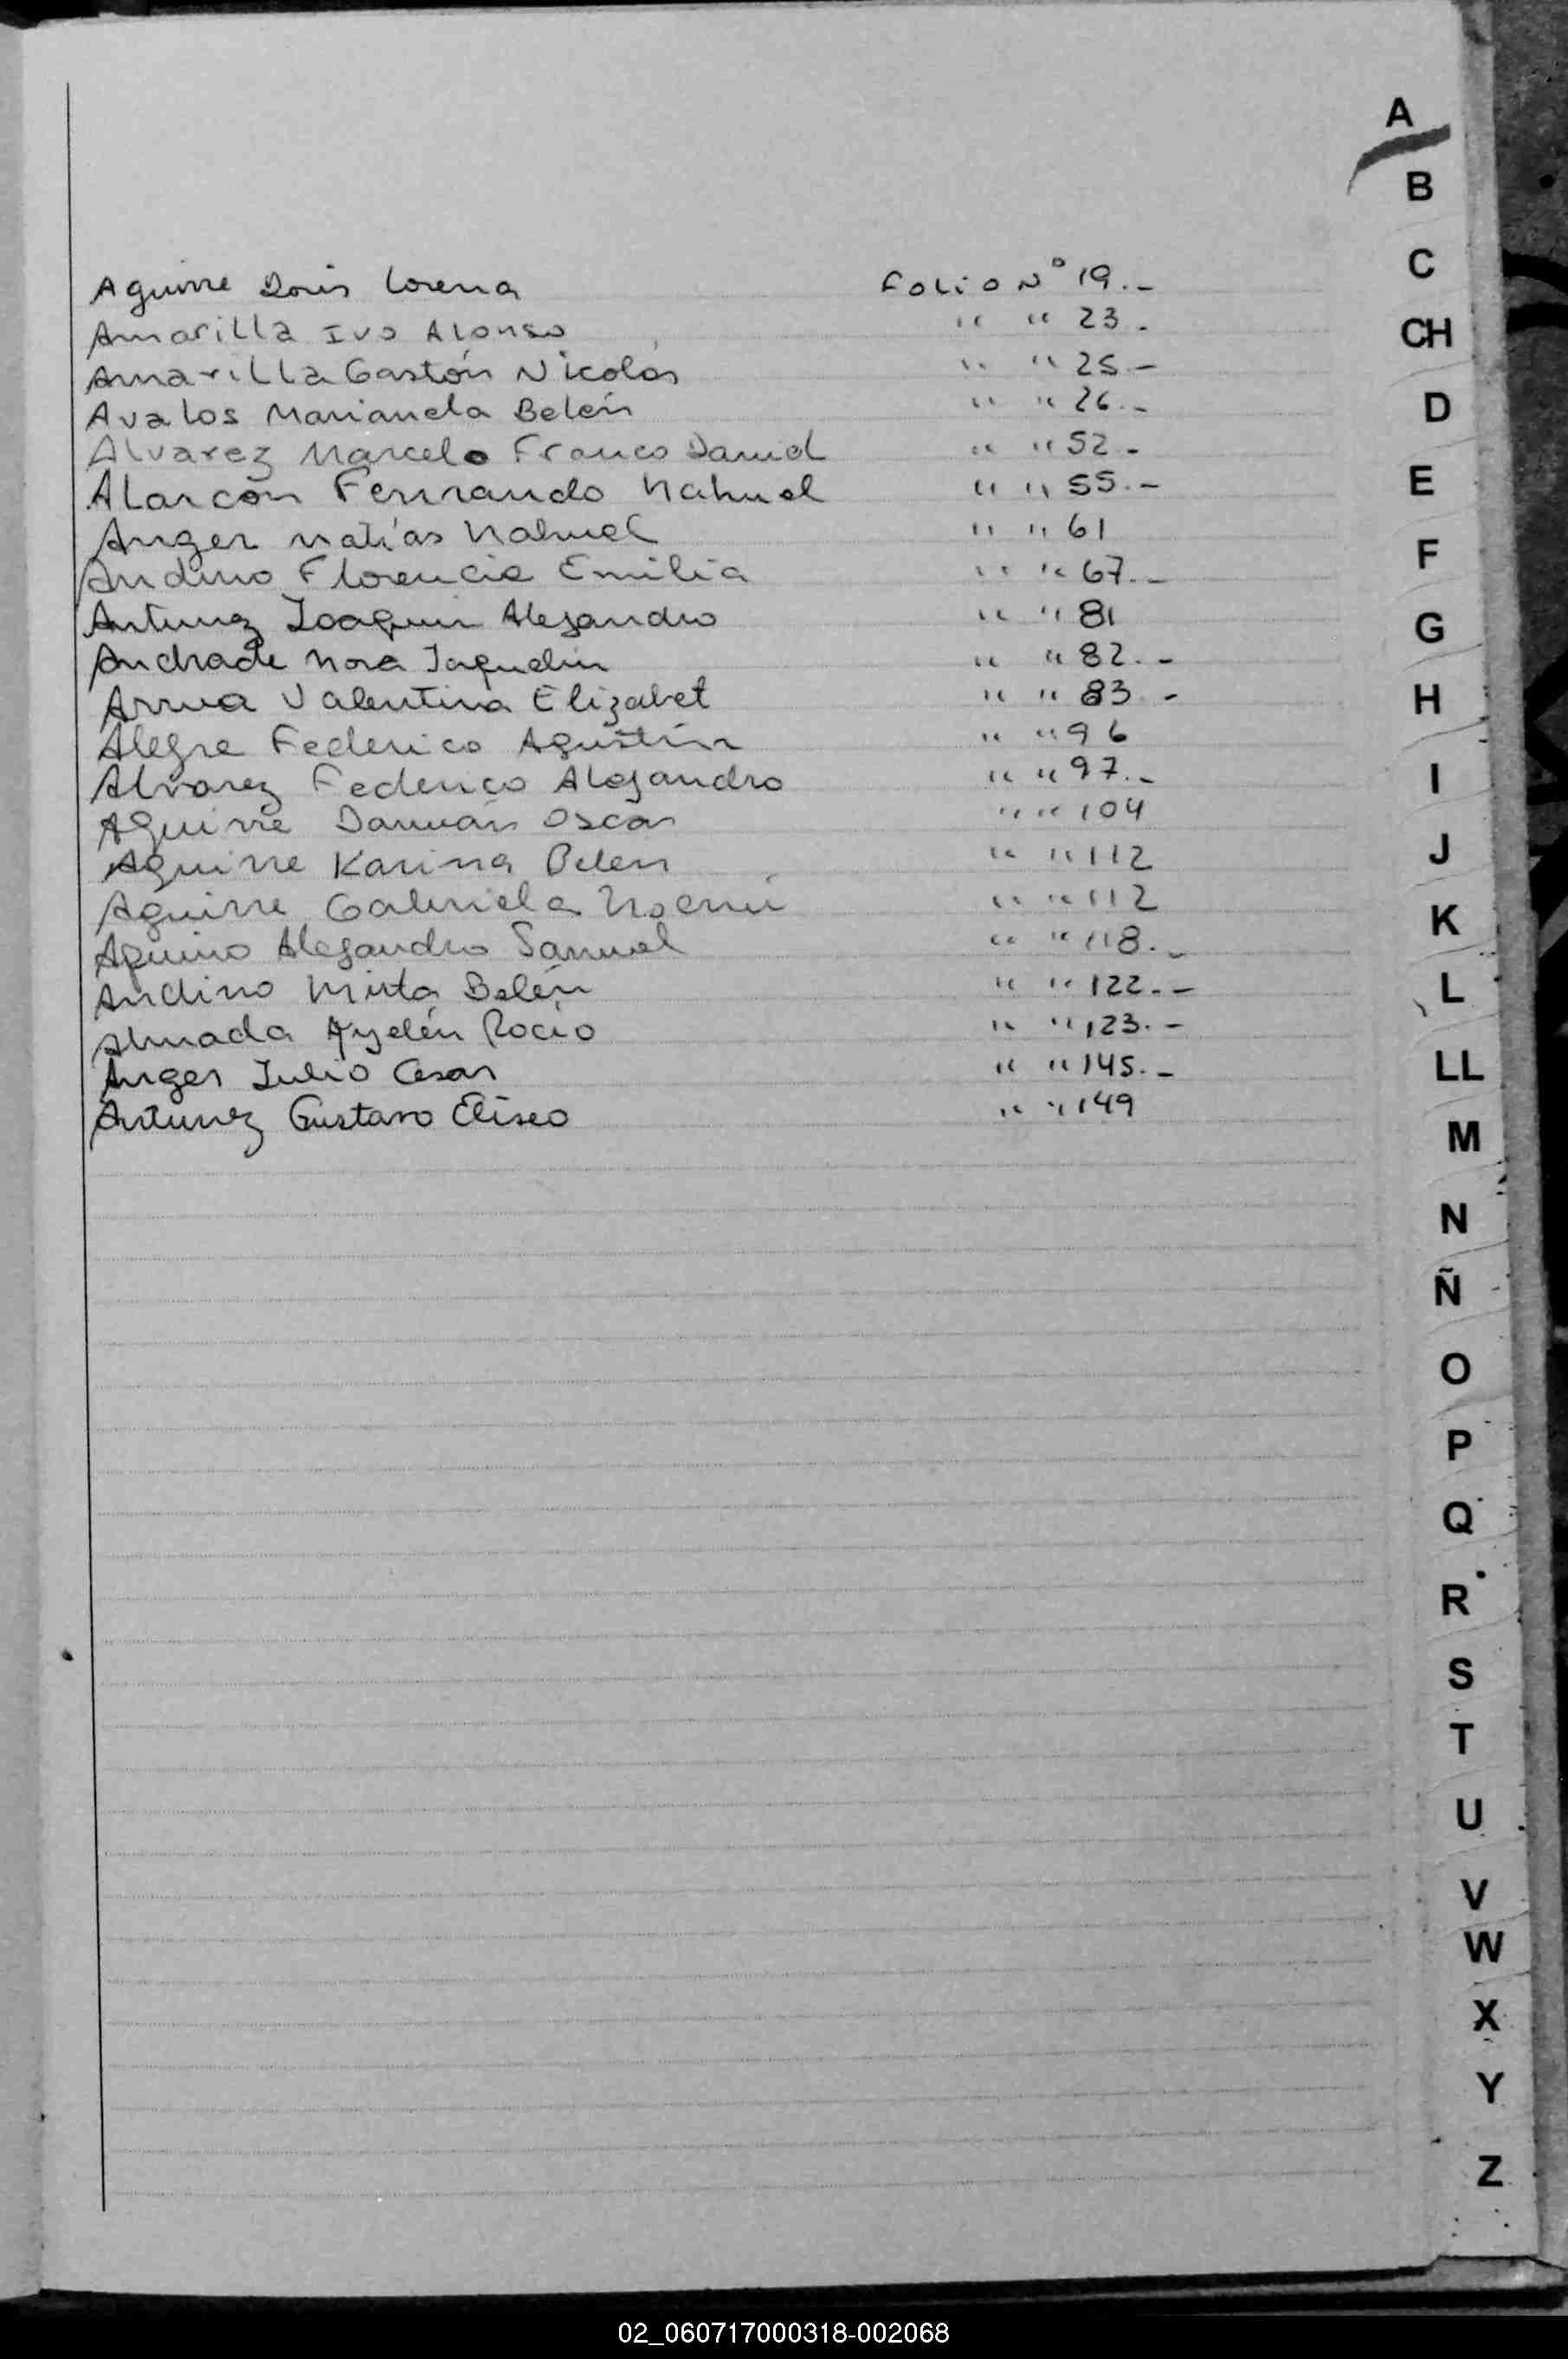 Aguirre Doris Lorena Folio Nº 19.-
Amarilla Ivo Alonso " " 23.
Amarilla Gastón Nicolás " " 25.-
Avalos Marianela Belén " " 26.-
Alvarez Marcelo Franco Daniel " " 52.-
Alarcón Fernando Nahuel " " 55.-
Anger Matías Nahuel " " 61
Andino Florencia Emilia " " 67.-
Antunez Joaquin Alejandro " " 81
Andrade Nora Jaquelin " " 82.-
Arrua Valentina Elizabet " " 83.-
Alegre Federico Agustín " " 96
Alvarez Federico Alejandro " " 97.-
Aguirre Damián Oscar " " 104
Aguirre Karina Belen " " 112
Aguirre Gabriela Noemí " " 112
Aquino Alejandro Samuel " " 118.-
Andino Mirta Belén " " 122.-
Almada Ayelén Rocío " " 123.-
Anger Julio Cesar " " 145.-
Antunez Gustavo Eliseo " " 149
A
B
C
CH
D
E
F
G
H
I
J
K
L
LL
M
N
Ñ
O
P
Q
R
S
T
U
V
W
X
Y
Z
02_060717000318-002068